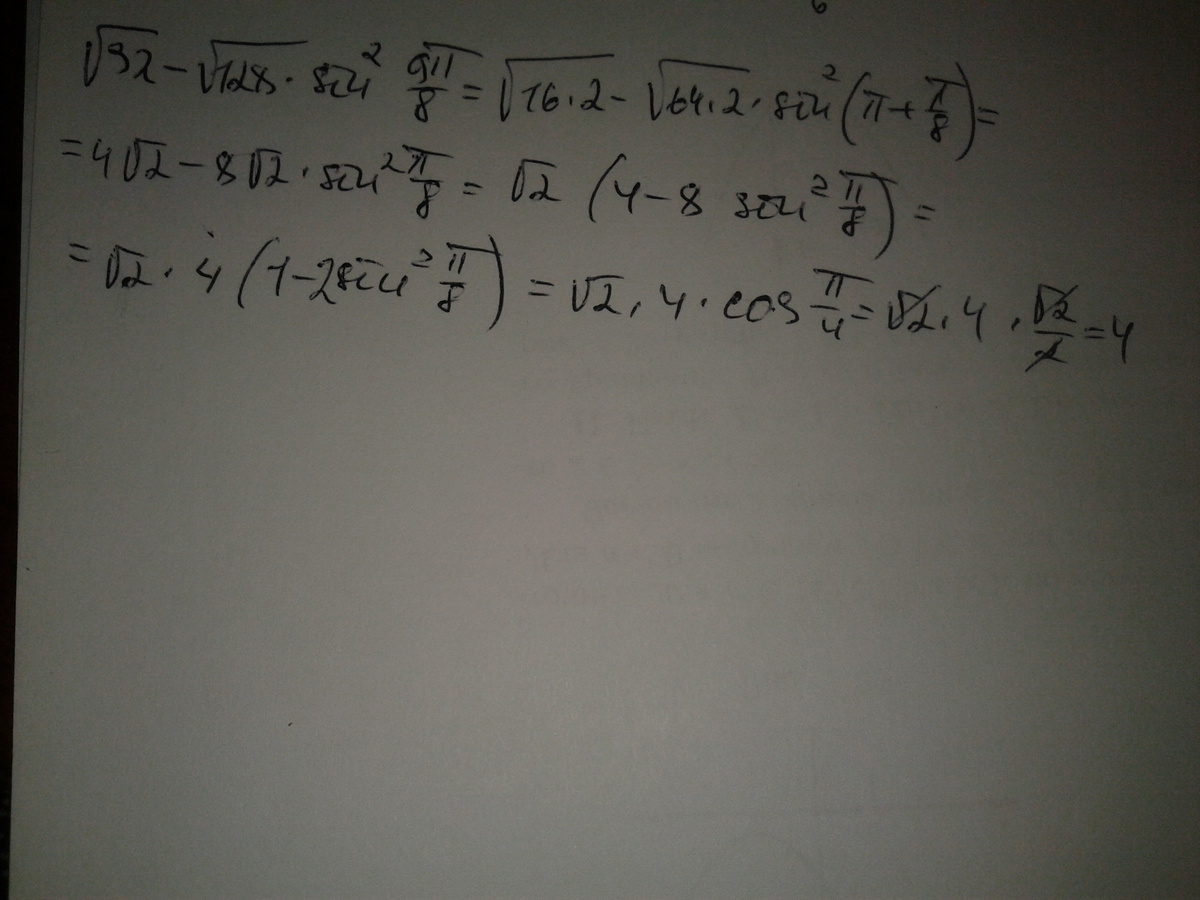 6
√32 − √128 · sin² 9π/8 = √16·2 − √64·2 · sin²(π + π/8) =
= 4√2 − 8√2 · sin² π/8 = √2 (4 − 8 sin² π/8) =
= √2 · 4 (1 − 2sin² π/8) = √2 · 4 · cos π/4 = √2 · 4 · √2/2 = 4